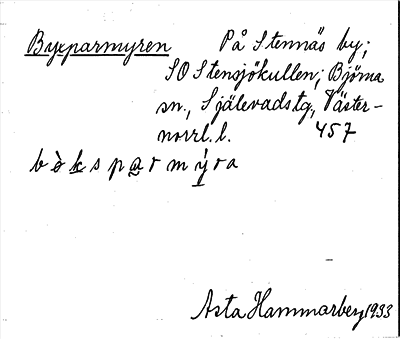 Byxparmyren På Stennäs by;
SO Stensjökullen; Björna
sn., Själevads tg., Väster-
norrl. l. 457
bòksparmýra
Asta Hammarberg 1933